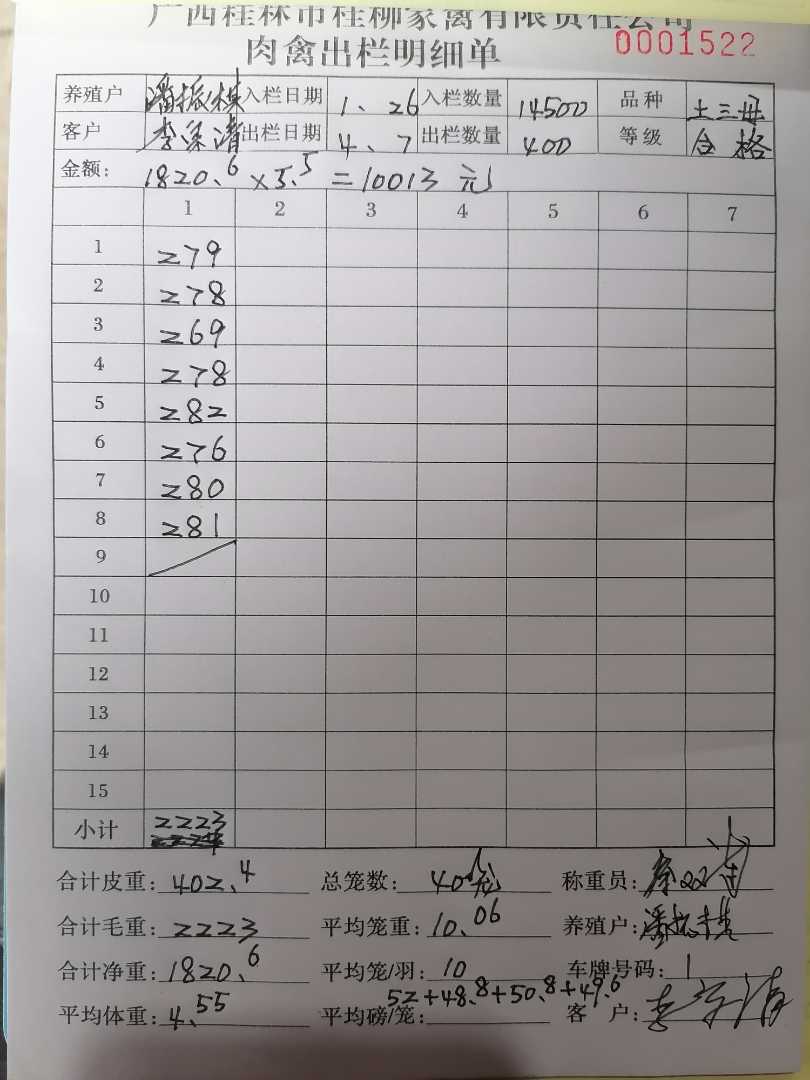 广西桂林市桂柳家禽有限责任公司
肉禽出栏明细单 0001522
养殖户 潘振 入栏日期 1、26 入栏数量 14500 品种 土三母
客户 李 清 出栏日期 4、7 出栏数量 400 等级 合格
金额: 1820.6×5.5=10013元
1 2 3 4 5 6 7
1 279
2 278
3 269
4 278
5 282
6 276
7 280
8 281
9
10
11
12
13
14
15
小计 2223
合计皮重: 402.4 总笼数: 40笼 称重员:
合计毛重: 2223 平均笼重: 10.06 养殖户: 潘振
合计净重: 1820.6 平均笼/羽: 10 车牌号码: 1
52+48.8+50.8+49.6
平均体重: 4.55 平均磅/笼: 客户: 李 清